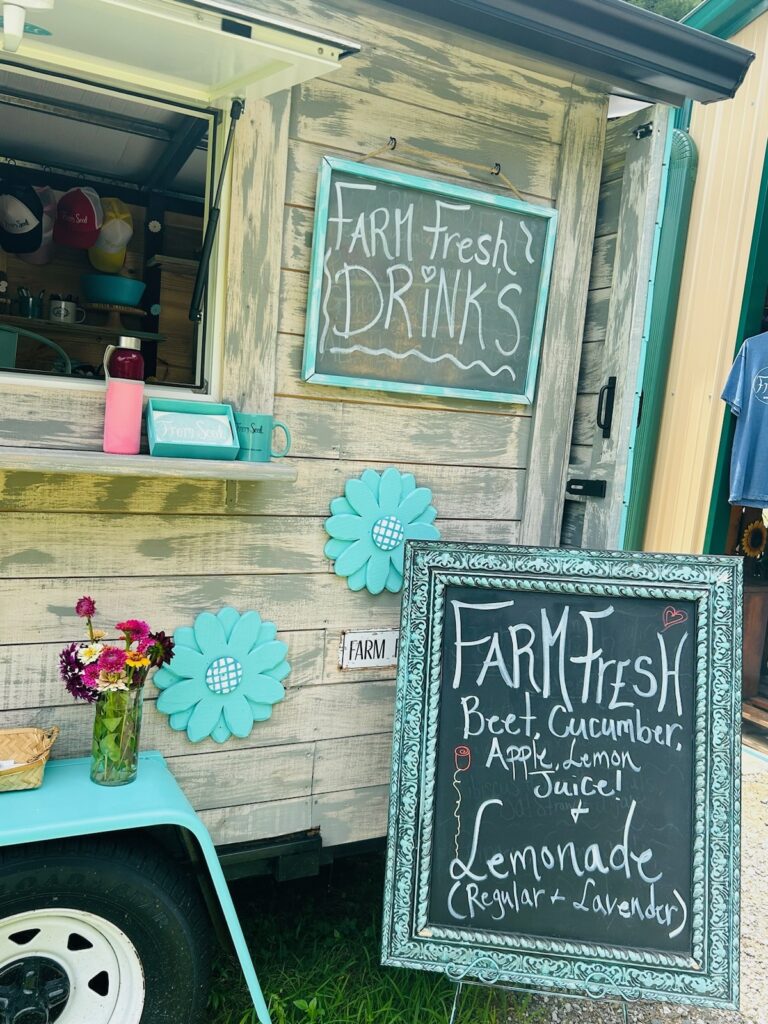 FARM Fresh
DRiNKS
FARM
FARM FrESH
Beet, Cucumber,
Apple, Lemon
Juice!
+
Lemonade
(Regular + Lavender)